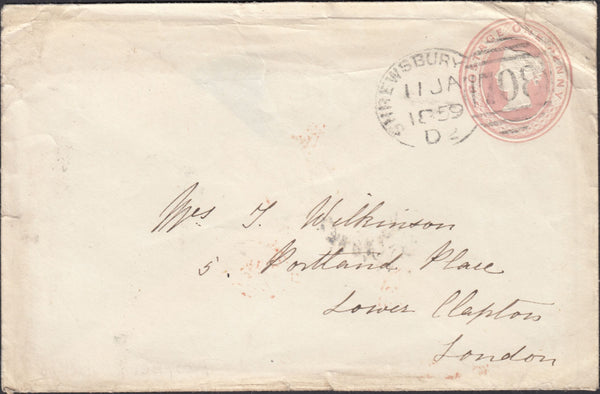 POSTAGE ONE PENNY
SHREWSBURY
11 JA
1859
D2
708
Mrs T. Wilkinson
5. Portland Place
Lower Clapton
London